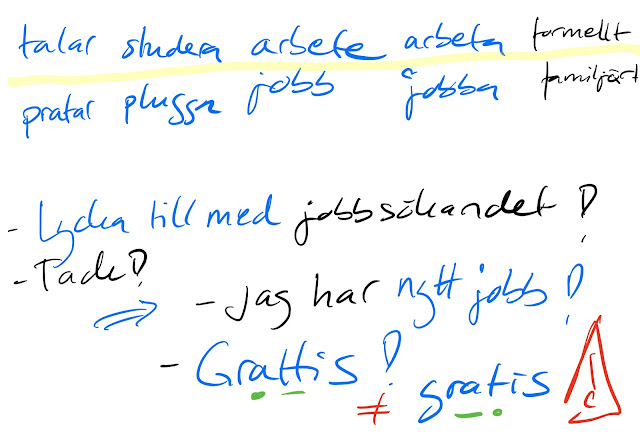 talar studera arbete arbeta formellt
pratar plugga jobb jobba familjärt
- Lycka till med jobbsökandet!
- Tack!
⇒ - Jag har nytt jobb!
- Grattis! ≠ gratis !